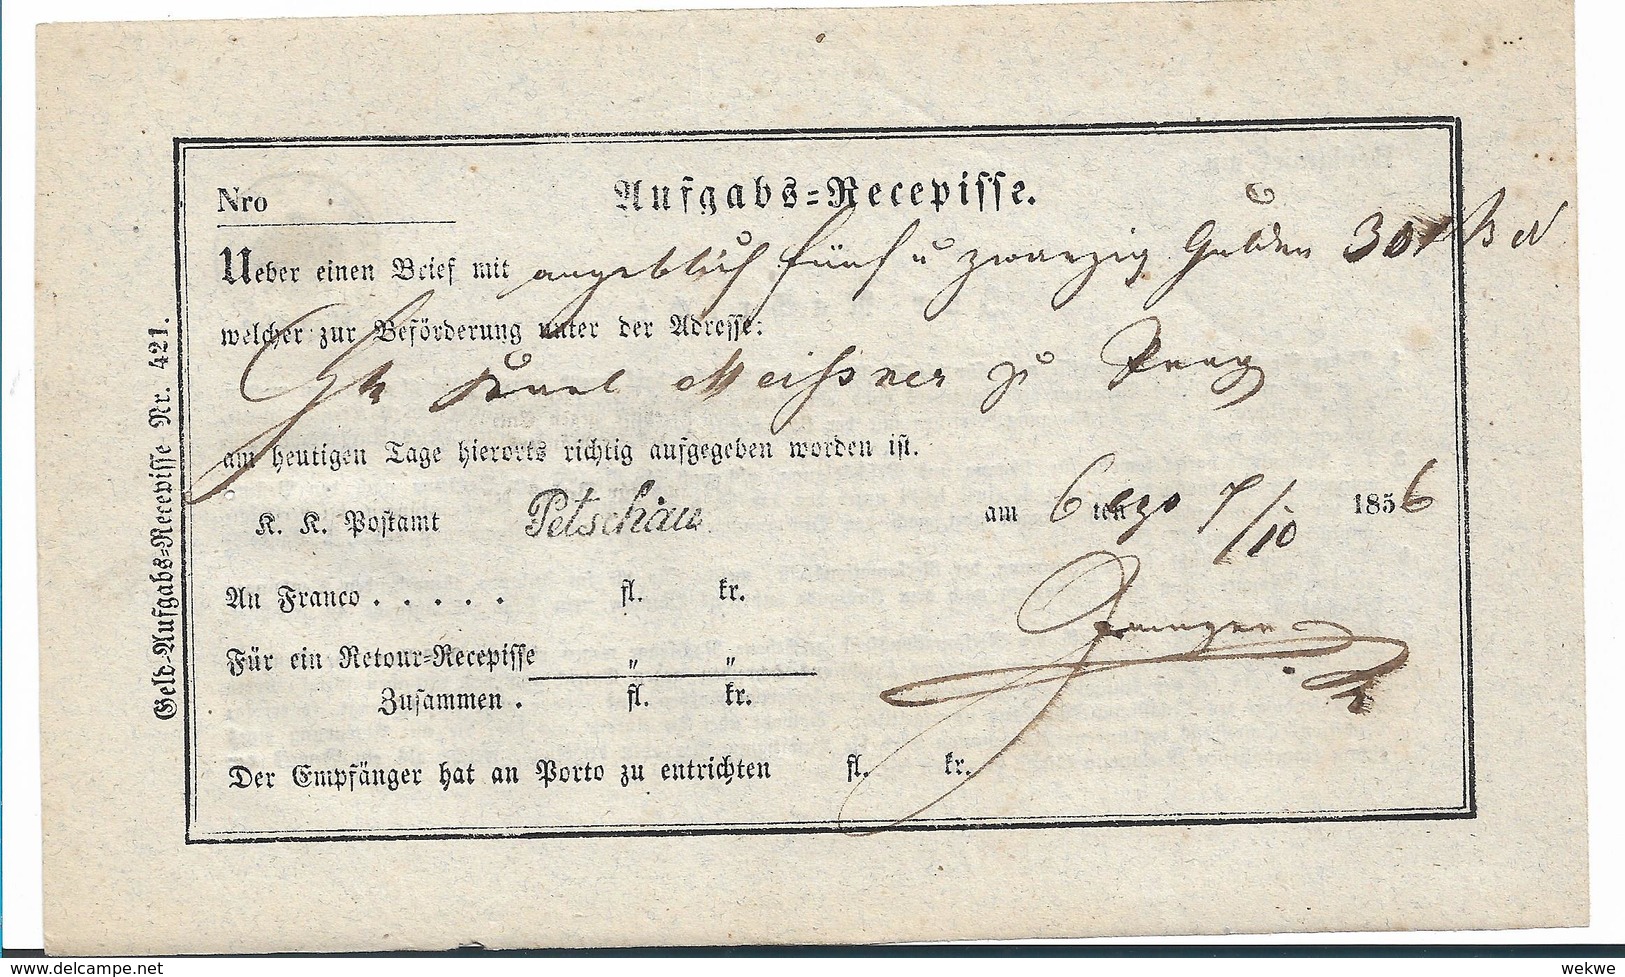 Aufgabs=Recepisse.
Nro
Ueber einen Brief mit angeblich fünf u zwanzig Gulden 30
welcher zur Beförderung unter der Adresse:
Karl Meißner zu Prag
am heutigen Tage hierorts richtig aufgegeben worden ist.
K. K. Postamt Petschau am 6 ten 7/10 1856
An Franco . . . . . fl. kr.
Für ein Retour=Recepisse " "
Zusammen . fl. kr.
Der Empfänger hat an Porto zu entrichten fl. kr.
Geld-Aufgabs=Recepisse Nr. 421.
wekwe